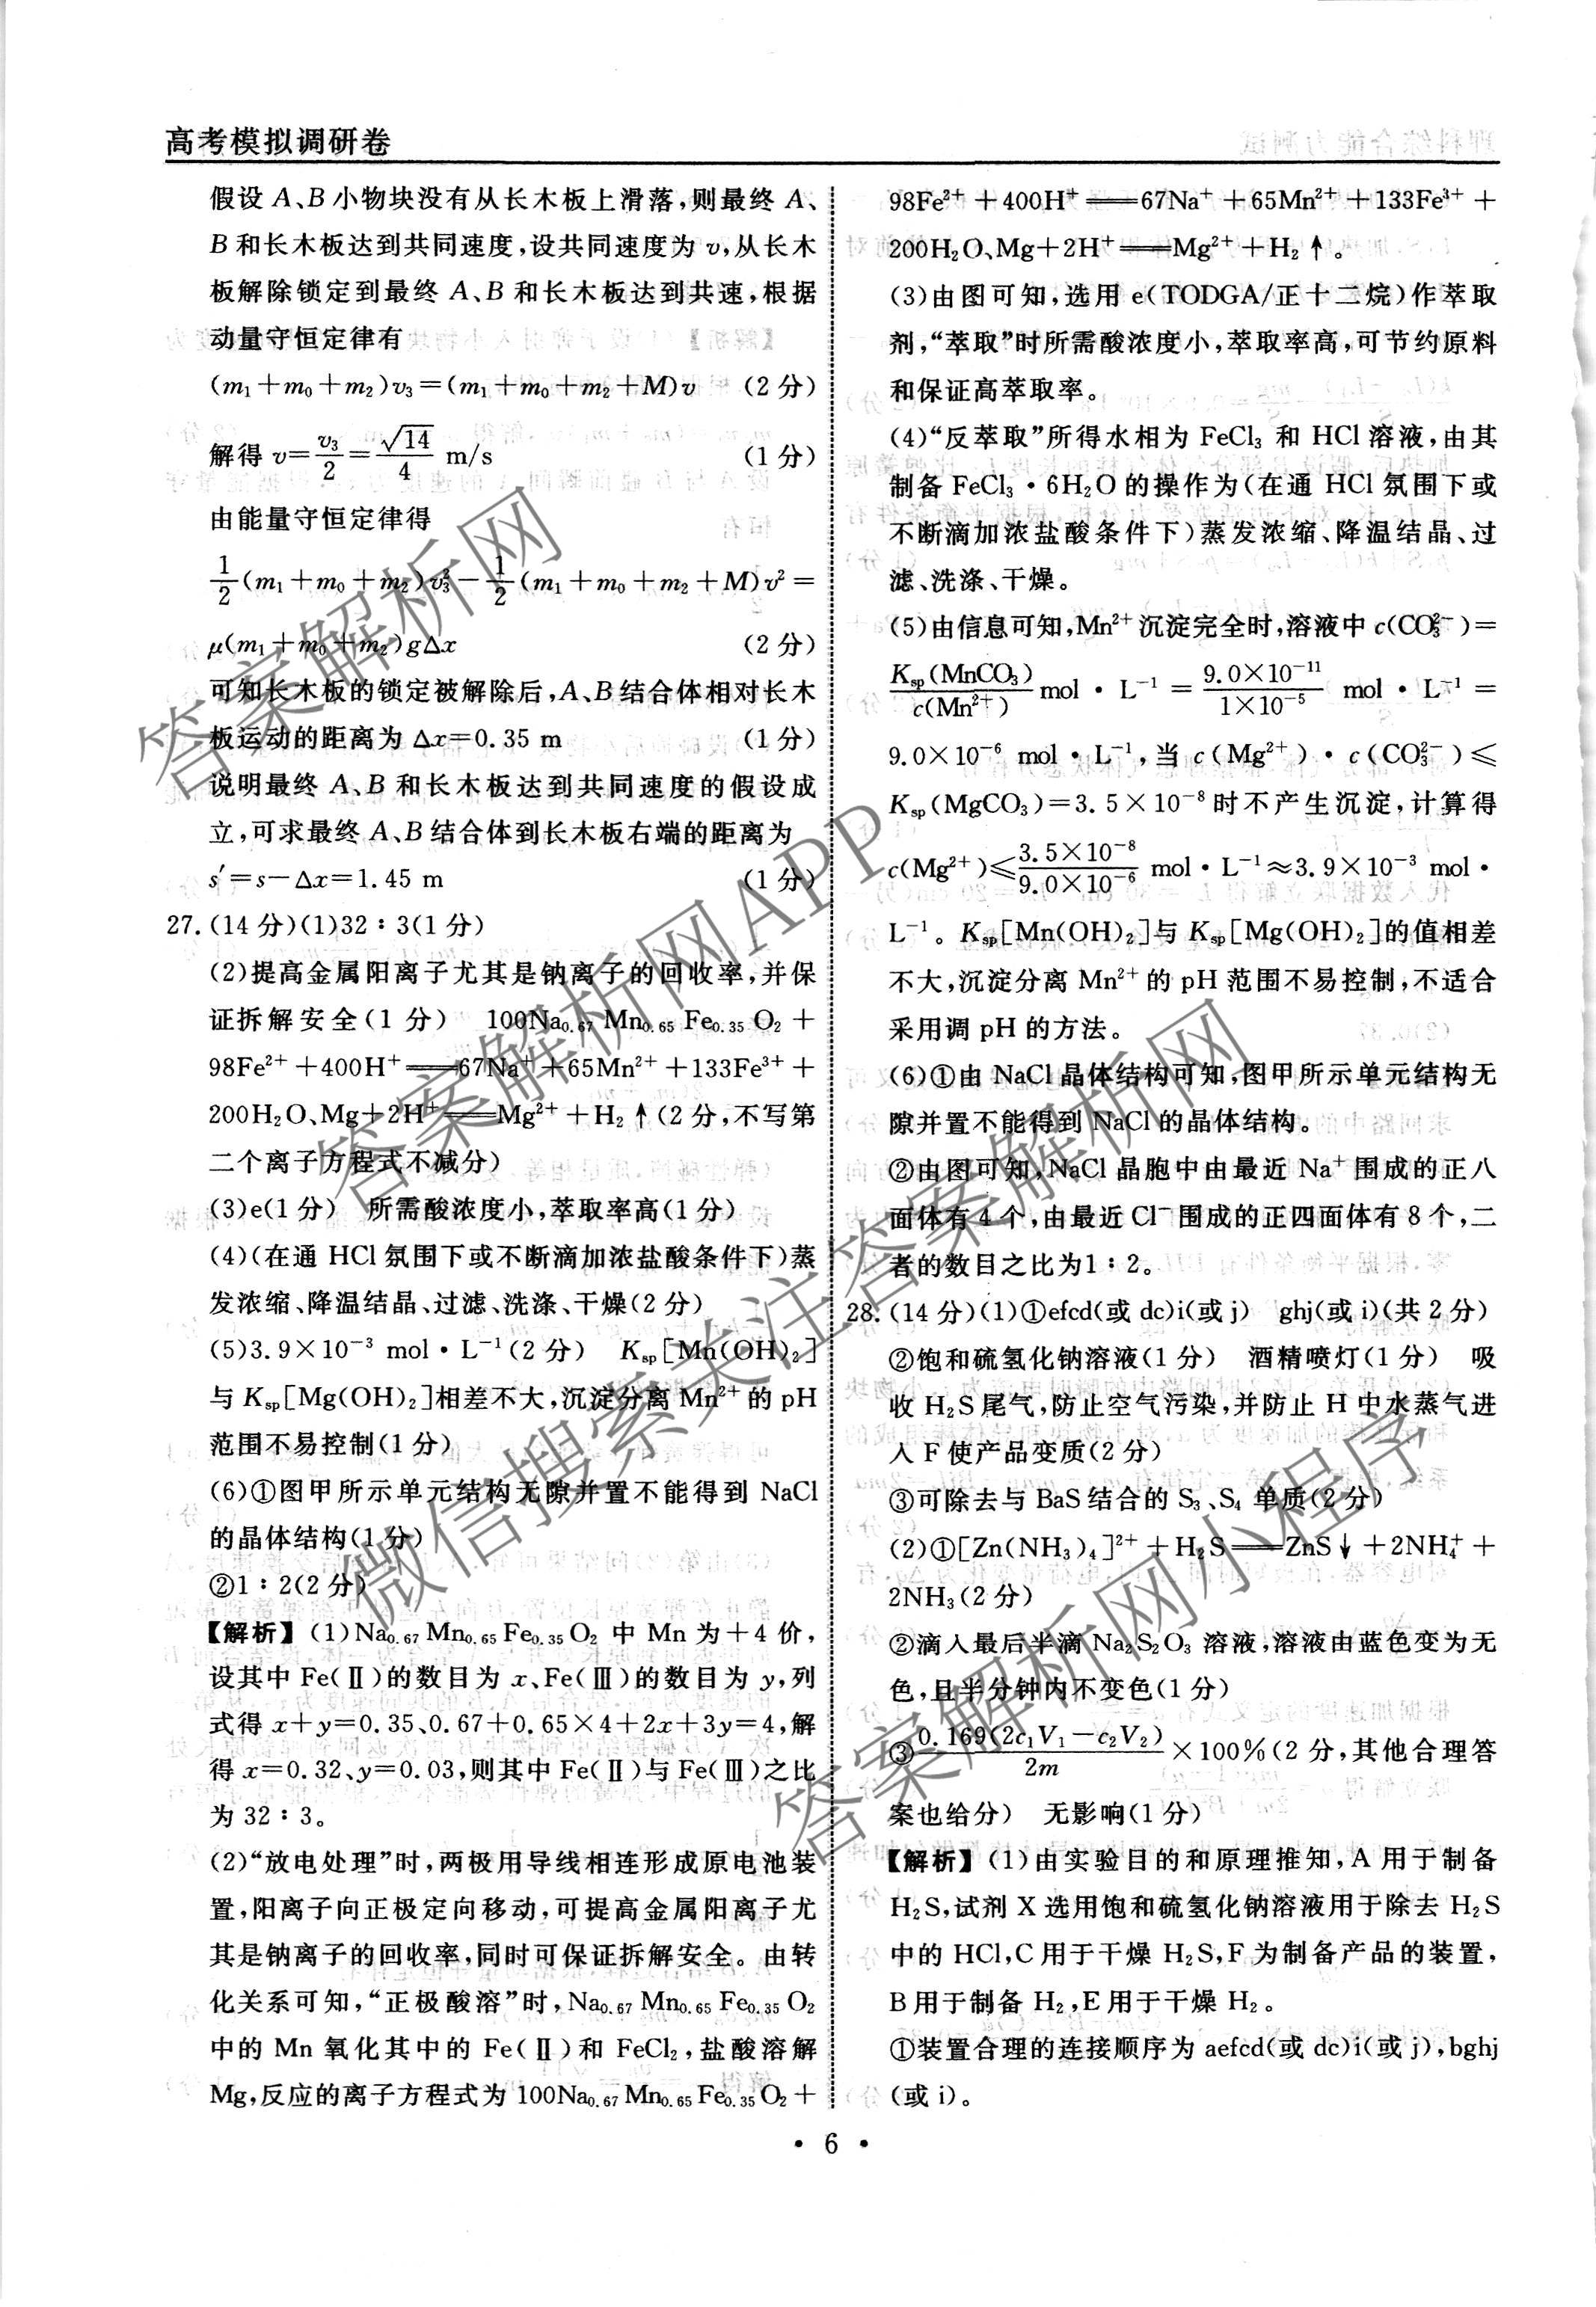 高考模拟调研卷
假设 A、B 小物块没有从长木板上滑落,则最终 A、
B 和长木板达到共同速度,设共同速度为 v,从长木
板解除锁定到最终 A、B 和长木板达到共速,根据
动量守恒定律有
(m₁+m₀+m₂)v₃=(m₁+m₀+m₂+M)v (2 分)
解得 v=v₃/2=√14/4 m/s (1 分)
由能量守恒定律得
1/2(m₁+m₀+m₂)v₃²−1/2(m₁+m₀+m₂+M)v²=
μ(m₁+m₀+m₂)gΔx (2 分)
可知长木板的锁定被解除后,A、B 结合体相对长木
板运动的距离为 Δx=0.35 m (1 分)
说明最终 A、B 和长木板达到共同速度的假设成
立,可求最终 A、B 结合体到长木板右端的距离为
s′=s−Δx=1.45 m (1 分)
27.(14 分)(1)32∶3(1 分)
(2)提高金属阳离子尤其是钠离子的回收率,并保
证拆解安全(1 分) 100Na₀.₆₇Mn₀.₆₅Fe₀.₃₅O₂+
98Fe²⁺+400H⁺══67Na⁺+65Mn²⁺+133Fe³⁺+
200H₂O、Mg+2H⁺══Mg²⁺+H₂↑(2 分,不写第
二个离子方程式不减分)
(3)e(1 分) 所需酸浓度小,萃取率高(1 分)
(4)(在通 HCl 氛围下或不断滴加浓盐酸条件下)蒸
发浓缩、降温结晶、过滤、洗涤、干燥(2 分)
(5)3.9×10⁻³ mol·L⁻¹(2 分) Kₛₚ[Mn(OH)₂]
与 Kₛₚ[Mg(OH)₂]相差不大,沉淀分离 Mn²⁺ 的 pH
范围不易控制(1 分)
(6)①图甲所示单元结构无隙并置不能得到 NaCl
的晶体结构(1 分)
②1∶2(2 分)
【解析】(1)Na₀.₆₇Mn₀.₆₅Fe₀.₃₅O₂ 中 Mn 为+4 价,
设其中 Fe(Ⅱ)的数目为 x、Fe(Ⅲ)的数目为 y,列
式得 x+y=0.35、0.67+0.65×4+2x+3y=4,解
得 x=0.32、y=0.03,则其中 Fe(Ⅱ)与 Fe(Ⅲ)之比
为 32∶3。
(2)“放电处理”时,两极用导线相连形成原电池装
置,阳离子向正极定向移动,可提高金属阳离子尤
其是钠离子的回收率,同时可保证拆解安全。由转
化关系可知,“正极酸溶”时,Na₀.₆₇Mn₀.₆₅Fe₀.₃₅O₂
中的 Mn 氧化其中的 Fe(Ⅱ)和 FeCl₂,盐酸溶解
Mg,反应的离子方程式为 100Na₀.₆₇Mn₀.₆₅Fe₀.₃₅O₂+
98Fe²⁺+400H⁺══67Na⁺+65Mn²⁺+133Fe³⁺+
200H₂O、Mg+2H⁺══Mg²⁺+H₂↑。
(3)由图可知,选用 e(TODGA/正十二烷)作萃取
剂,“萃取”时所需酸浓度小,萃取率高,可节约原料
和保证高萃取率。
(4)“反萃取”所得水相为 FeCl₃ 和 HCl 溶液,由其
制备 FeCl₃·6H₂O 的操作为(在通 HCl 氛围下或
不断滴加浓盐酸条件下)蒸发浓缩、降温结晶、过
滤、洗涤、干燥。
(5)由信息可知,Mn²⁺沉淀完全时,溶液中 c(CO₃²⁻)=
Kₛₚ(MnCO₃)/c(Mn²⁺) mol·L⁻¹ = 9.0×10⁻¹¹/1×10⁻⁵ mol·L⁻¹ =
9.0×10⁻⁶ mol·L⁻¹,当 c(Mg²⁺)·c(CO₃²⁻)≤
Kₛₚ(MgCO₃)=3.5×10⁻⁸时不产生沉淀,计算得
c(Mg²⁺)≤3.5×10⁻⁸/9.0×10⁻⁶ mol·L⁻¹≈3.9×10⁻³ mol·
L⁻¹。Kₛₚ[Mn(OH)₂]与 Kₛₚ[Mg(OH)₂]的值相差
不大,沉淀分离 Mn²⁺ 的 pH 范围不易控制,不适合
采用调 pH 的方法。
(6)①由 NaCl 晶体结构可知,图甲所示单元结构无
隙并置不能得到 NaCl 的晶体结构。
②由图可知,NaCl 晶胞中由最近 Na⁺ 围成的正八
面体有 4 个,由最近 Cl⁻ 围成的正四面体有 8 个,二
者的数目之比为1∶2。
28.(14 分)(1)①efcd(或 dc)i(或 j) ghj(或 i)(共 2 分)
②饱和硫氢化钠溶液(1 分) 酒精喷灯(1 分) 吸
收 H₂S 尾气,防止空气污染,并防止 H 中水蒸气进
入 F 使产品变质(2 分)
③可除去与 BaS 结合的 S₃、S₄ 单质(2 分)
(2)①[Zn(NH₃)₄]²⁺+H₂S══ZnS↓+2NH₄⁺+
2NH₃(2 分)
②滴入最后半滴 Na₂S₂O₃ 溶液,溶液由蓝色变为无
色,且半分钟内不变色(1 分)
③0.169(2c₁V₁−c₂V₂)/2m×100%(2 分,其他合理答
案也给分) 无影响(1 分)
【解析】(1)由实验目的和原理推知,A 用于制备
H₂S,试剂 X 选用饱和硫氢化钠溶液用于除去 H₂S
中的 HCl,C 用于干燥 H₂S,F 为制备产品的装置,
B 用于制备 H₂,E 用于干燥 H₂。
①装置合理的连接顺序为 aefcd(或 dc)i(或 j),bghj
(或 i)。
·6·
答案解析网
答案解析网APP
微信搜索关注答案解析网
答案解析网小程序